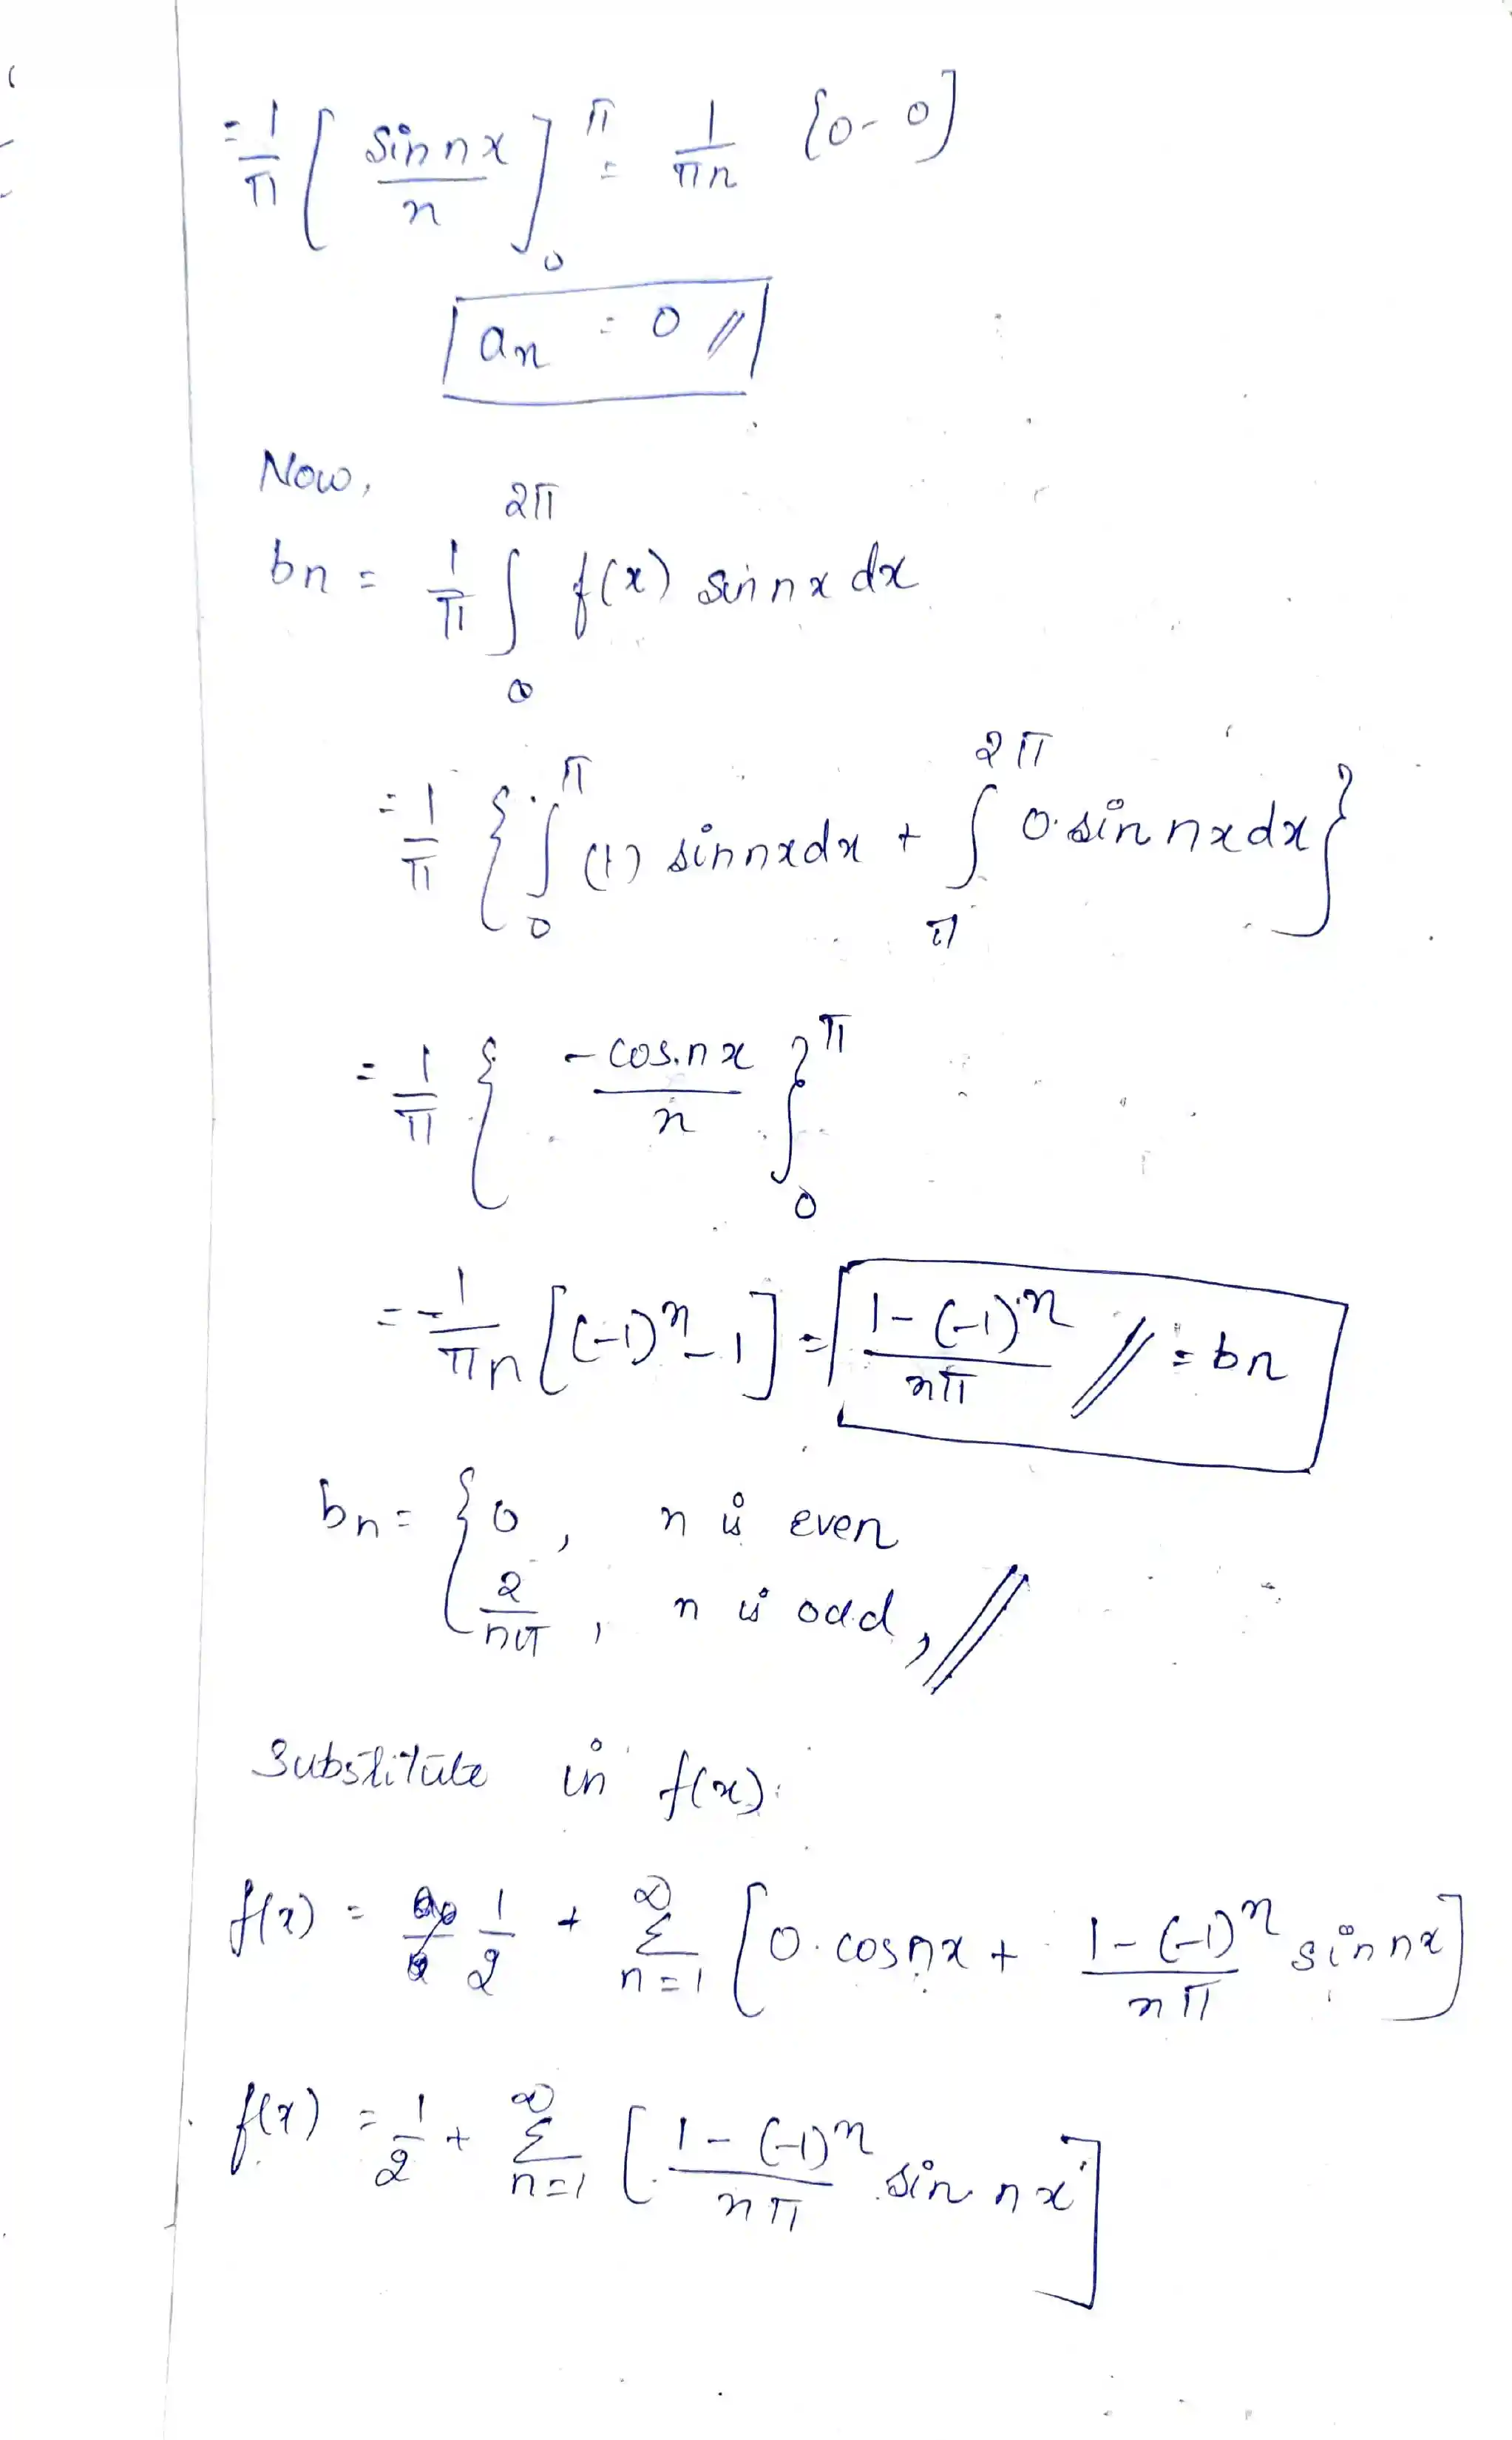 = 1/π [ sin nx / n ]₀^π = 1/πn [0-0]
an = 0 //
Now,
bn = 1/π ∫₀^2π f(x) sin nx dx
= 1/π { ∫₀^π (1) sin nx dx + ∫π^2π 0. sin nx dx }
= 1/π { -cos nx / n }₀^π
= -1/πn [(-1)^n - 1] = 1-(-1)^n / nπ // = bn
bn = { 0, n is even
2/nπ, n is odd, //
Substitute in f(x).
f(x) = 1/2 + Σ n=1 ∞ [ 0. cos nx + 1-(-1)^n / nπ sin nx ]
f(x) = 1/2 + Σ n=1 ∞ [ 1-(-1)^n / nπ sin nx ]